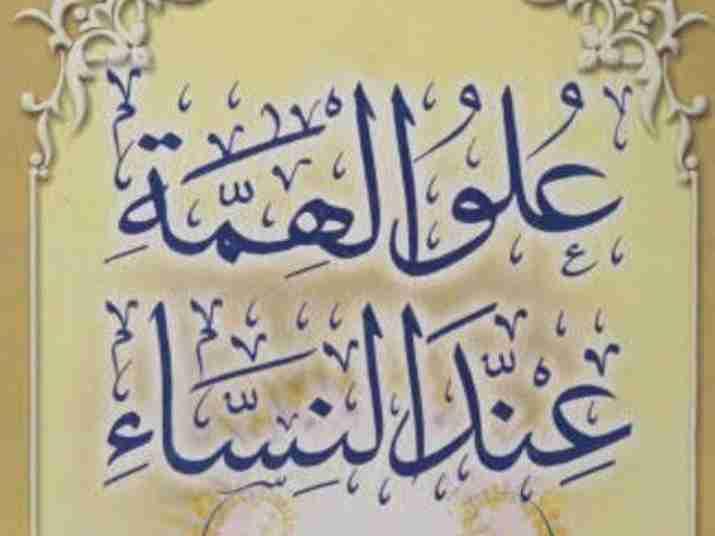 عُلُوُّ الْهِمَّةِ
عِنْدَ النِّسَاءِ